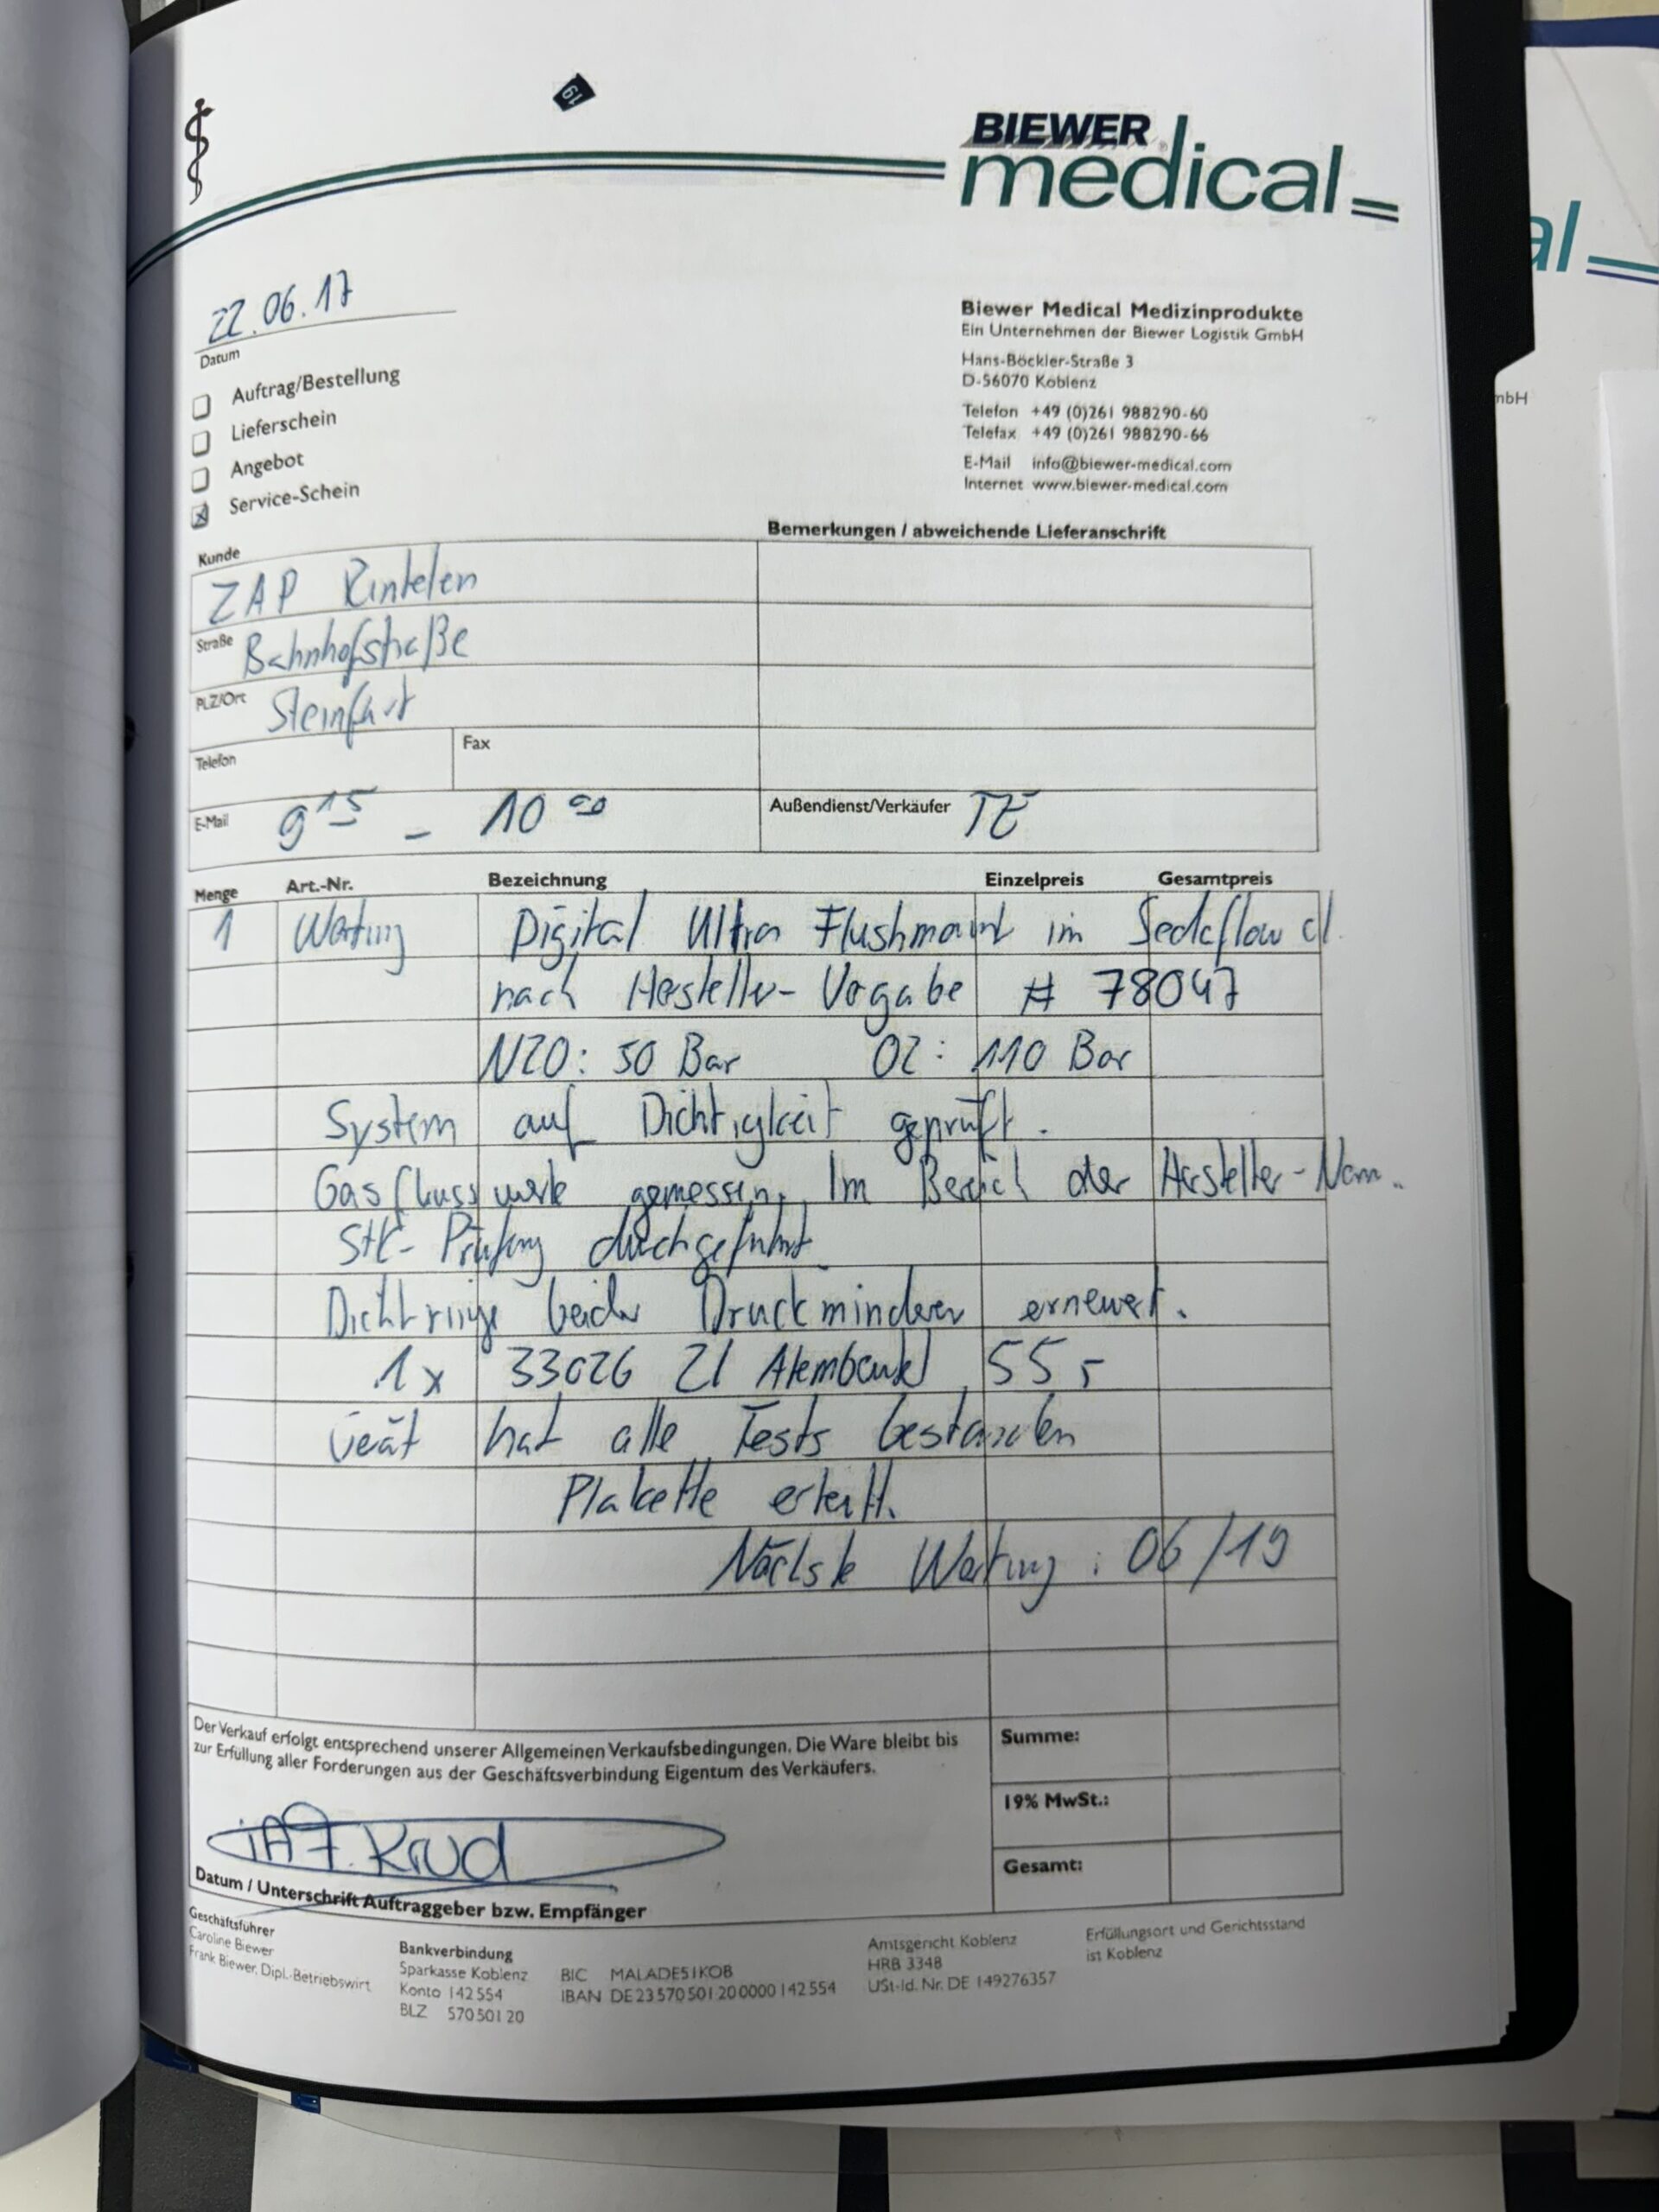 19
BIEWER
medical
al
22.06.17
Datum
Auftrag/Bestellung
Lieferschein
Angebot
Service-Schein
Biewer Medical Medizinprodukte
Ein Unternehmen der Biewer Logistik GmbH
Hans-Böckler-Straße 3
D-56070 Koblenz
Telefon +49 (0)261 988290-60
Telefax +49 (0)261 988290-66
E-Mail info@biewer-medical.com
Internet www.biewer-medical.com
mbH
Bemerkungen / abweichende Lieferanschrift
Kunde
ZAP Rintelen
Straße Bahnhofstraße
PLZ/Ort Steinfurt
Telefon Fax
E-Mail 9 15 - 10 00 Außendienst/Verkäufer TE
Menge Art.-Nr. Bezeichnung Einzelpreis Gesamtpreis
1 Wartung Digital Ultra Flushmount im
nach Hersteller-Vorgabe # 78047
N2O: 50 Bar O2: 110 Bar
System auf Dichtigkeit geprüft.
Gasflusswerte gemessen, Im Bereich der Hersteller-Norm.
STK-Prüfung durchgeführt
Dichtringe beider Druckminderer erneuert.
1x 33026 2l Atembeutel 55,-
Gerät hat alle Tests bestanden
Plakette erteilt.
Nächste Wartung: 06/19
Der Verkauf erfolgt entsprechend unserer Allgemeinen Verkaufsbedingungen. Die Ware bleibt bis
zur Erfüllung aller Forderungen aus der Geschäftsverbindung Eigentum des Verkäufers.
Summe:
19% MwSt.:
Gesamt:
Datum / Unterschrift Auftraggeber bzw. Empfänger
Geschäftsführer
Caroline Biewer
Frank Biewer, Dipl.-Betriebswirt
Bankverbindung
Sparkasse Koblenz
Konto 142 554
BLZ 570 501 20
BIC MALADE51KOB
IBAN DE 23 570 501 20 0000 142 554
Amtsgericht Koblenz
HRB 3348
USt-Id. Nr. DE 149276357
Erfüllungsort und Gerichtsstand
ist Koblenz